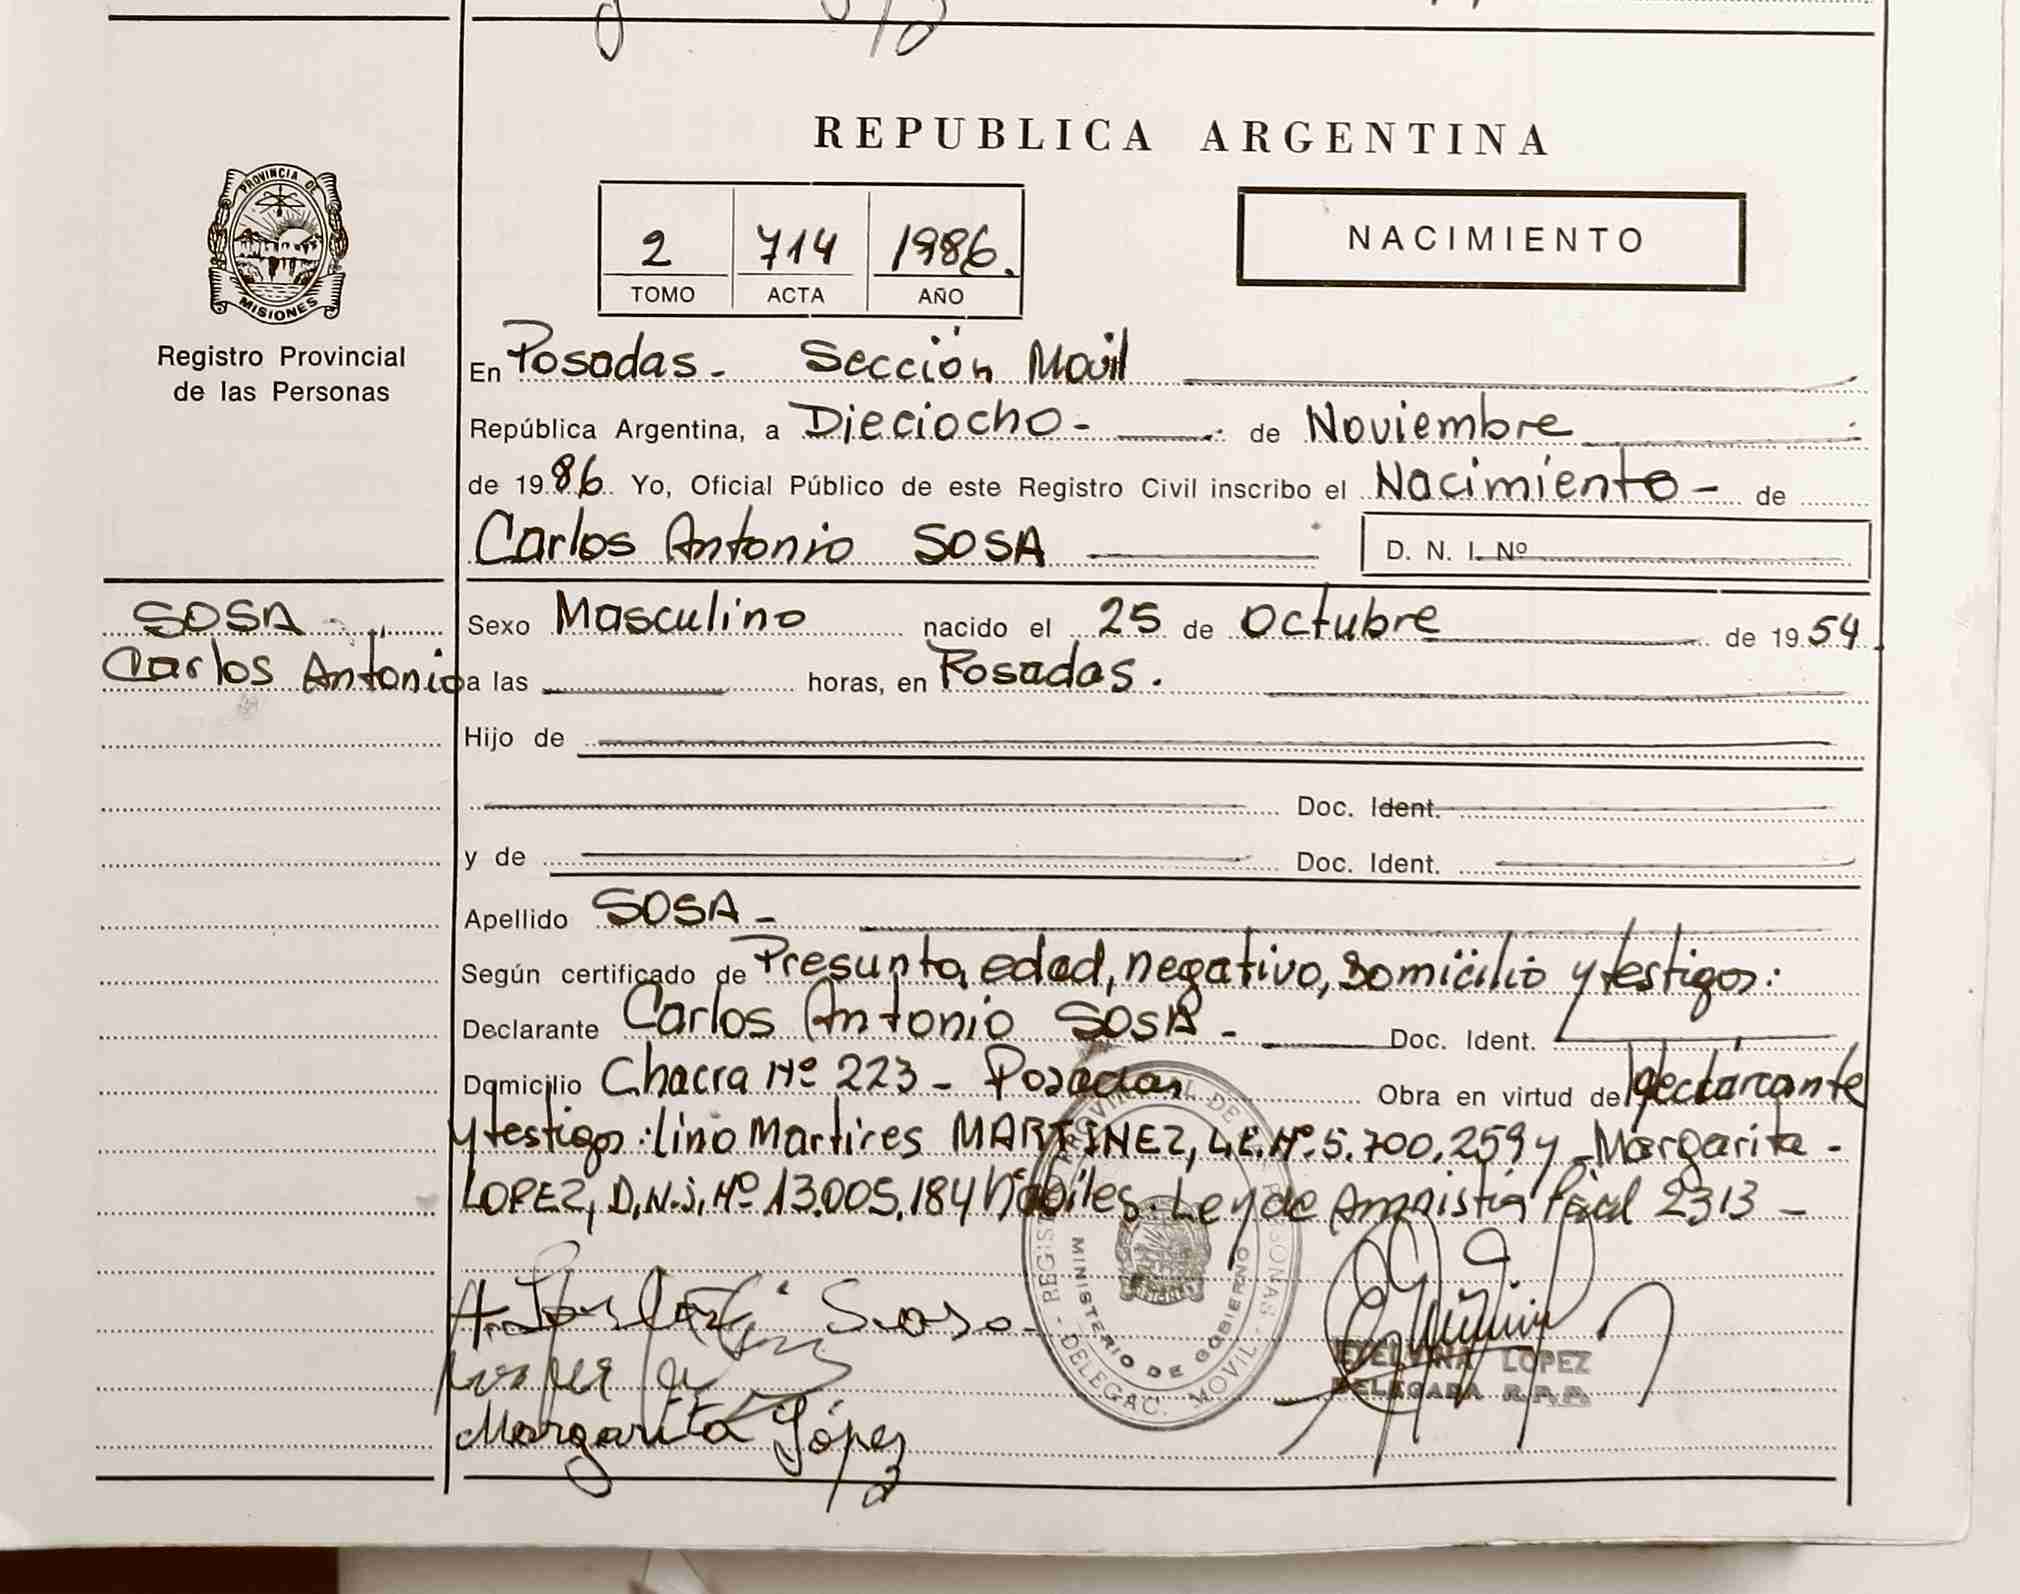 REPUBLICA ARGENTINA
PROVINCIA DE MISIONES
Registro Provincial
de las Personas
2 714 1986.
TOMO ACTA AÑO
NACIMIENTO
En Posadas - Sección Movil
República Argentina, a Dieciocho - de Noviembre
de 19 86 Yo, Oficial Público de este Registro Civil inscribo el Nacimiento - de
Carlos Antonio SOSA D. N. I. Nº
SOSA
Carlos Antonio
Sexo Masculino nacido el 25 de Octubre de 19 54
a las horas, en Posadas.
Hijo de
Doc. Ident.
y de Doc. Ident.
Apellido SOSA -
Según certificado de Presunta edad, negativo, Domicilio y testigos:
Declarante Carlos Antonio SOSA - Doc. Ident.
Domicilio Chacra Nº 223 - Posadas Obra en virtud de declarante
y testigos: Lino Martires MARTINEZ, L.E. Nº 5.700.259 y Margarita -
LOPEZ, D.N.i. Nº 13.005.184 hábiles. Ley de Amnistia 2313 -
REGISTRO PROVINCIAL DE LAS PERSONAS - DELEGAC. MOVIL -
MINISTERIO DE GOBIERNO
Sosa
Margarita López
ETELVINA LOPEZ
DELEGADA R.P.P.